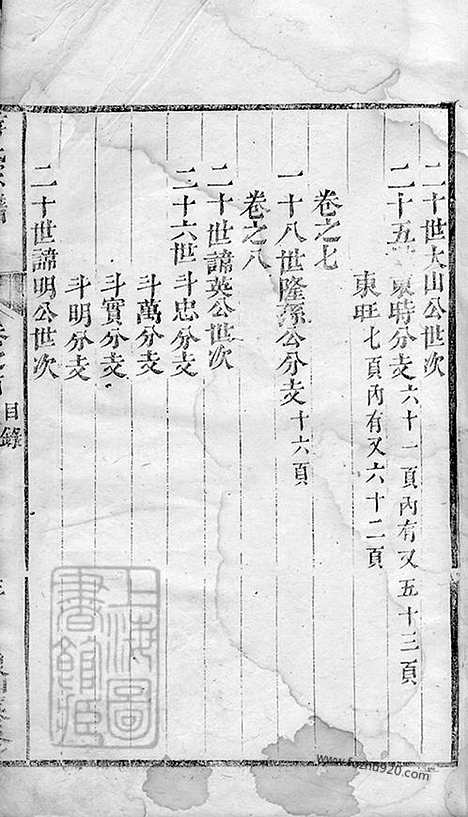 二十世大山公世次
二十五 東時分支六十一頁內有又五十三頁
東旺七頁內有又六十二頁
卷之七
一十八世隆孫公分支十六頁
卷之八
二十世諦英公世次
二十六世斗忠分支
斗萬分支
斗實分支
斗明分支
二十世諦明公世次
目錄
上海圖書館藏
www.fozhu920.com